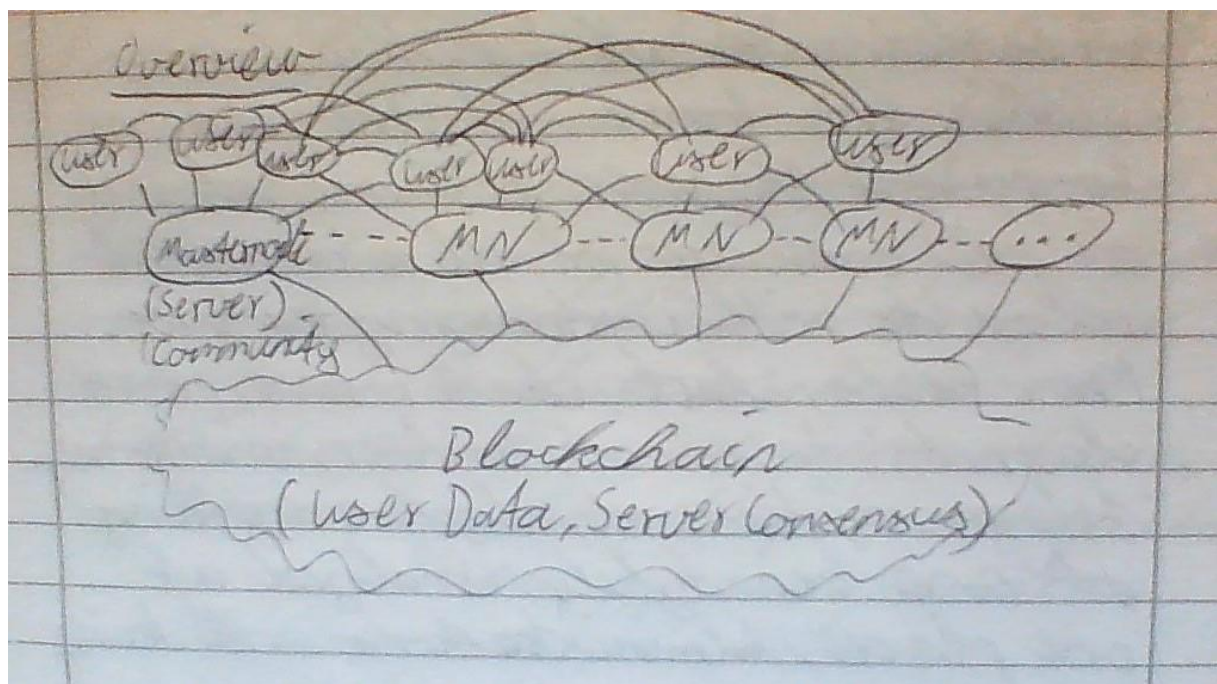 Overview
user user user user user user user
Masternode MN MN MN ...
(Server)
Community
Blockchain
(User Data, Server Consensus)